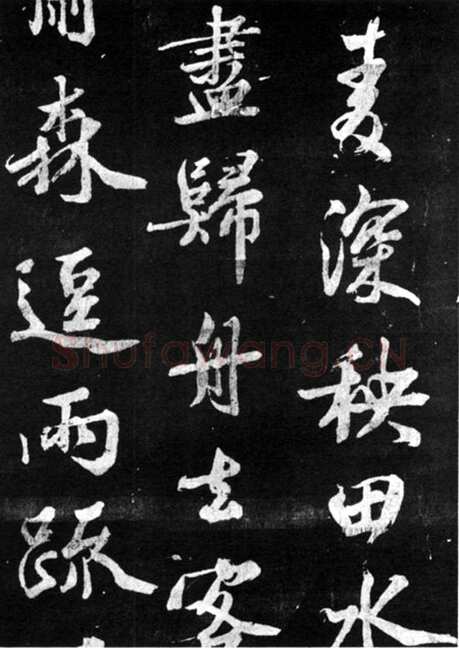 麦深秧田水
盡歸舟去客
森逗雨疏
Shufawang.CN